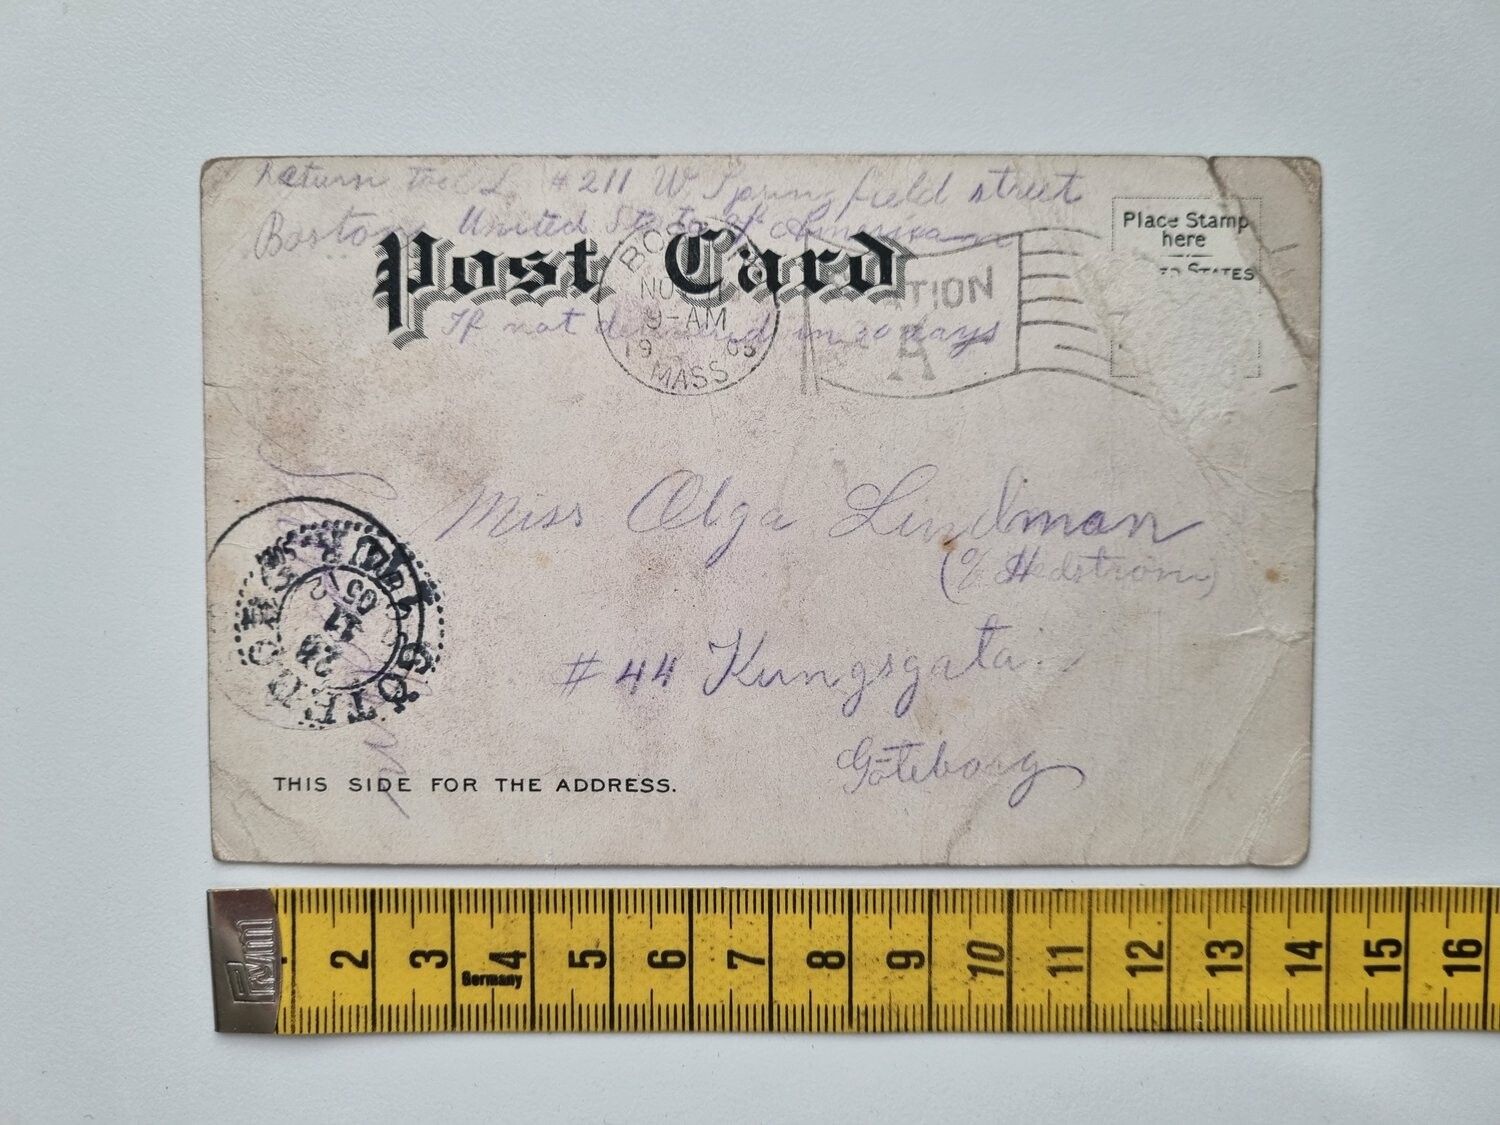 Return to # 211 W. Springfield street
Boston United States of America
Post Card
Place Stamp
here
STATES
BOSTON
NOV
9-AM
19 05
MASS
STATION
A
If not delivered in 20 days
Miss Olga Lindman
(% Hedström)
# 44 Kungsgata
Göteborg
GÖTEBORG
28
11
05
THIS SIDE FOR THE ADDRESS.
Prym
2 3 4 5 6 7 8 9 10 11 12 13 14 15 16
Germany